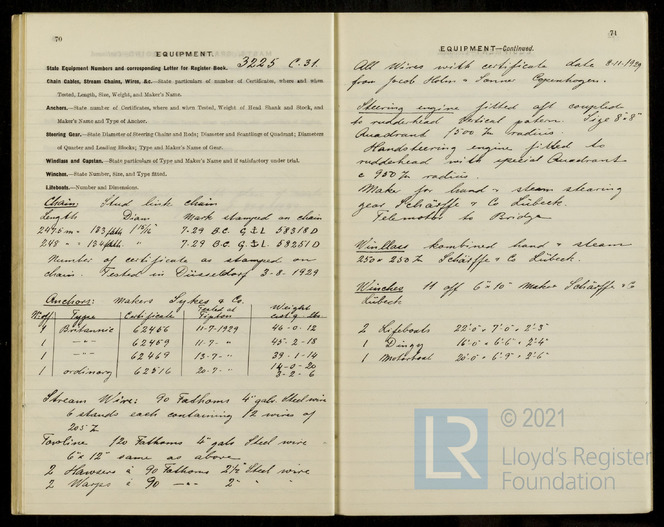 70
EQUIPMENT.
State Equipment Numbers and corresponding Letter for Register Book. 3225 C.31.
Chain Cables, Stream Chains, Wires, &c.—State particulars of number of Certificates, where and when
Tested, Length, Size, Weight, and Maker's Name.
Anchors.—State number of Certificates, where and when Tested, Weight of Head Shank and Stock, and
Maker's Name and Type of Anchor.
Steering Gear.—State Diameter of Steering Chains and Rods; Diameter and Scantlings of Quadrant; Diameters
of Quarter and Leading Blocks; Type and Maker's Name of Gear.
Windlass and Capstan.—State particulars of Type and Maker's Name and if satisfactory under trial.
Winches.—State Number, Size, and Type fitted.
Lifeboats.—Number and Dimensions.
Chain: Stud link chain
Length Diam Mark stamped on chain
7-29 B.C. G.&L 58318 D
7-29 B.C. G.&L 58251 D
Number of certificate as stamped on
chain. Tested in Düsseldorf 3-8-1929
Anchors: Makers Sykes & Co.
N: off Type Certificate Tested at Tipton Weight
1 Britannic 62456 11-7-1929 46-0-12
1 -"- 62459 11-7-" 45-2-18
1 -"- 62469 13-7-" 39-1-14
1 ordinary 62516 20-7-" 14-0-20
3-2-6
Stream Wire: 90 Fathoms 4" galv Steel wire
6 stands each containing 12 wires of
Towline 120 Fathoms 4" galv Steel wire
6 x 12 same as above
2 Hawsers à 90 Fathoms 2½" Steel wire
2 Warps à 90 -"- 2" " "
71
EQUIPMENT—Continued.
All Wires with certificate date 8-11-1929
from Jacob Holm & Sonner Copenhagen.
Steering engine fitted aft coupled
to rudderhead Vertical pattern. Size 8"x8"
Quadrant 1500 radius.
Handsteering engine fitted to
rudderhead with special Quadrant
c 950 radius.
Maker for hand & steam stearing
gear Schärffe & Co Lübeck.
Telemotor to Bridge
Winllass kombined hand & steam
250 x 250 Schärffe & Co Lübeck.
Winches 11 off 6" x 10" Maker Schärffe & Co
Lübeck
2 Lifeboats 22'-0" x 7'-0" x 2'-8"
1 Dingey 16'-0" x 6'-6" x 2'-4"
1 Motorboat 20'-0" x 6'-9" x 2'-6"
© 2021
LR
Lloyd's Register
Foundation